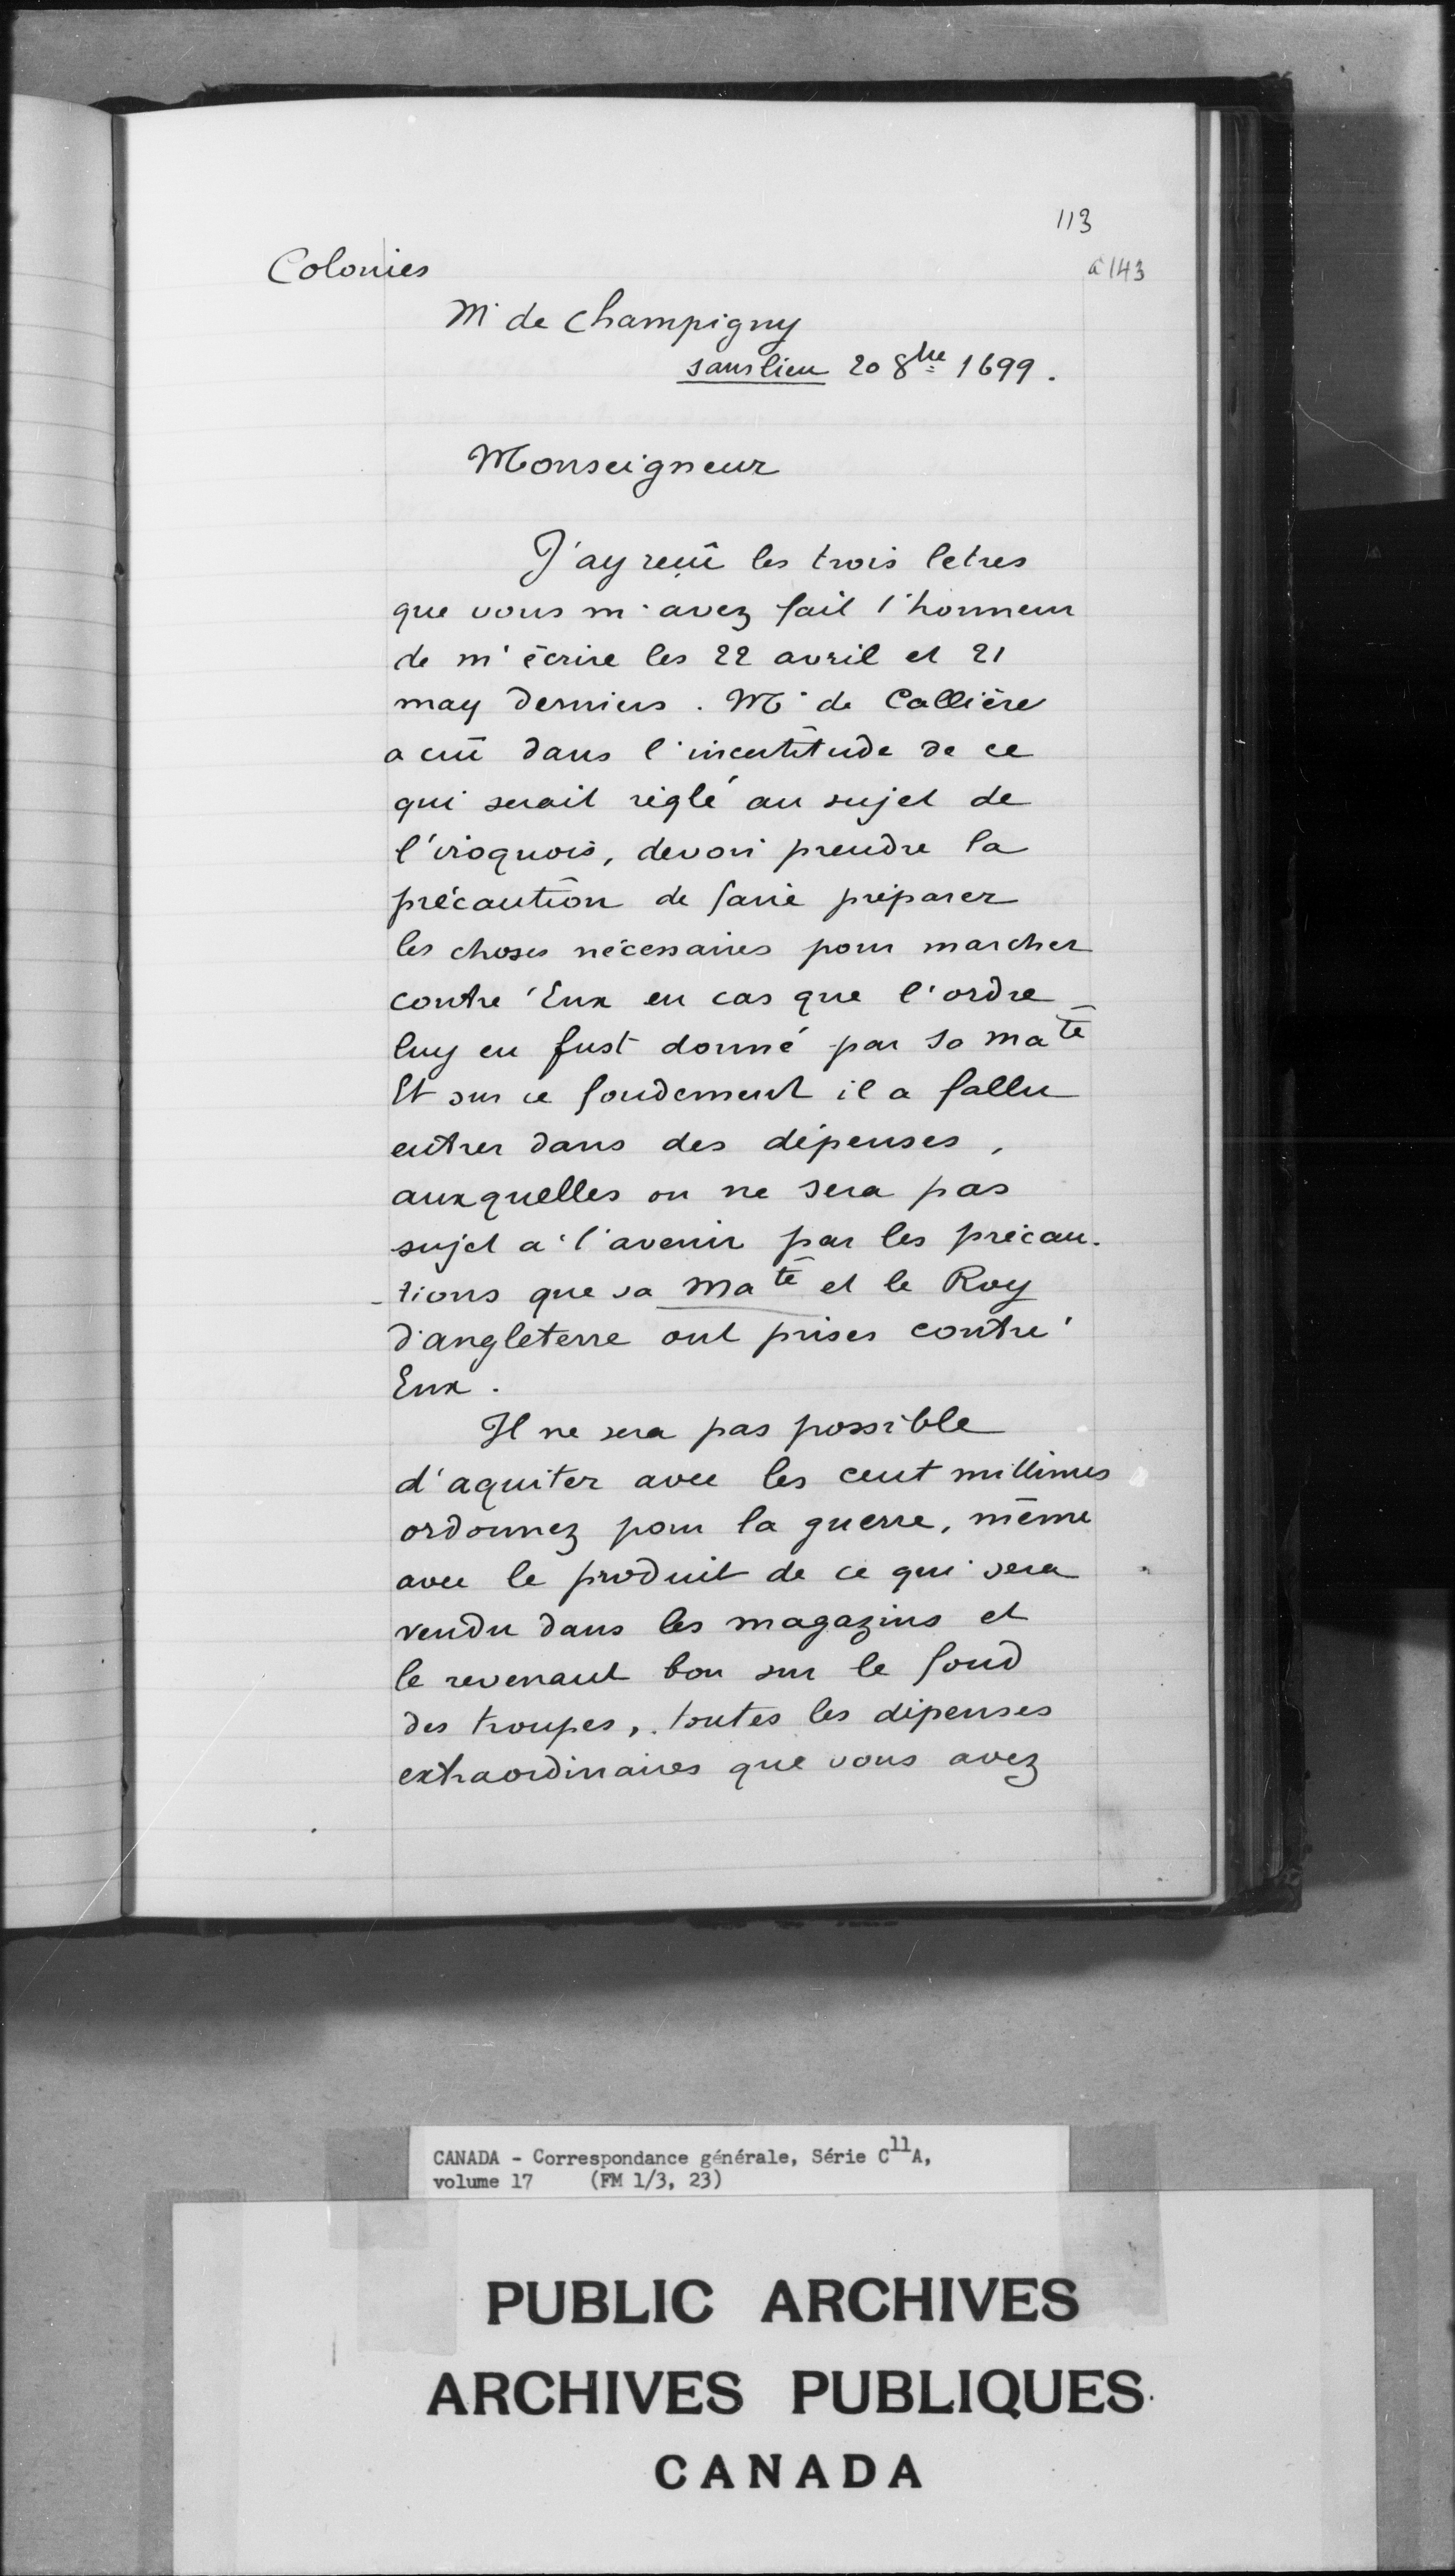 113
Colonies
à 143
Mr de Champigny
sans lieu 20 8bre 1699.
Monseigneur
J'ay reçû les trois letres
que vous m'avez fait l'honneur
de m'écrire les 22 avril et 21
may derniers. Mr de Callière
a crû dans l'incertitude de ce
qui serait réglé au sujet de
l'iroquois, devoir prendre la
précaution de faire préparer
les choses nécessaires pour marcher
contre Eux en cas que l'ordre
luy en fust donné par Sa Maté
Et sur ce fondement il a fallu
entrer dans des dépenses,
auxquelles on ne sera pas
sujet a l'avenir par les précau-
-tions que sa Maté et le Roy
d'angleterre ont prises contre
Eux.
Il ne sera pas possible
d'aquiter avec les cent
ordonnez pour la guerre, même
avec le produit de ce qui sera
vendu dans les magazins et
le revenant bon sur le fond
des troupes, toutes les dépenses
extraordinaires que vous avez
CANADA - Correspondance générale, Série C11A,
volume 17 (FM 1/3, 23)
PUBLIC ARCHIVES
ARCHIVES PUBLIQUES
CANADA